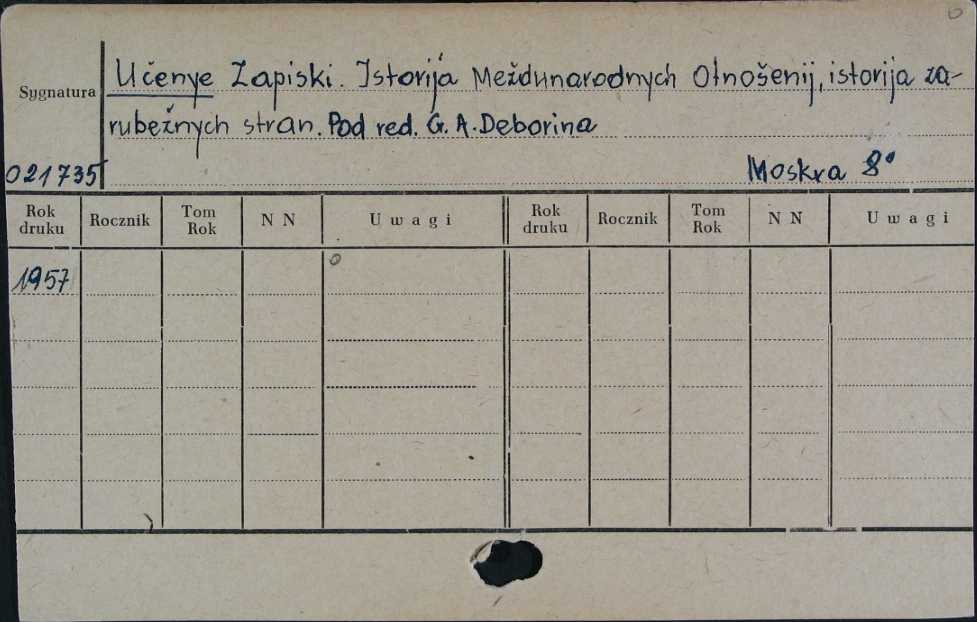 Učenye Zapiski. Istorija Meždunarodnych Otnošenij, istorija za-
Sygnatura
rubežnych stran. Pod red. G. A. Deborina
021735
Moskva 8°
Rok druku Rocznik Tom Rok N N Uwagi Rok druku Rocznik Tom Rok N N Uwagi
1957